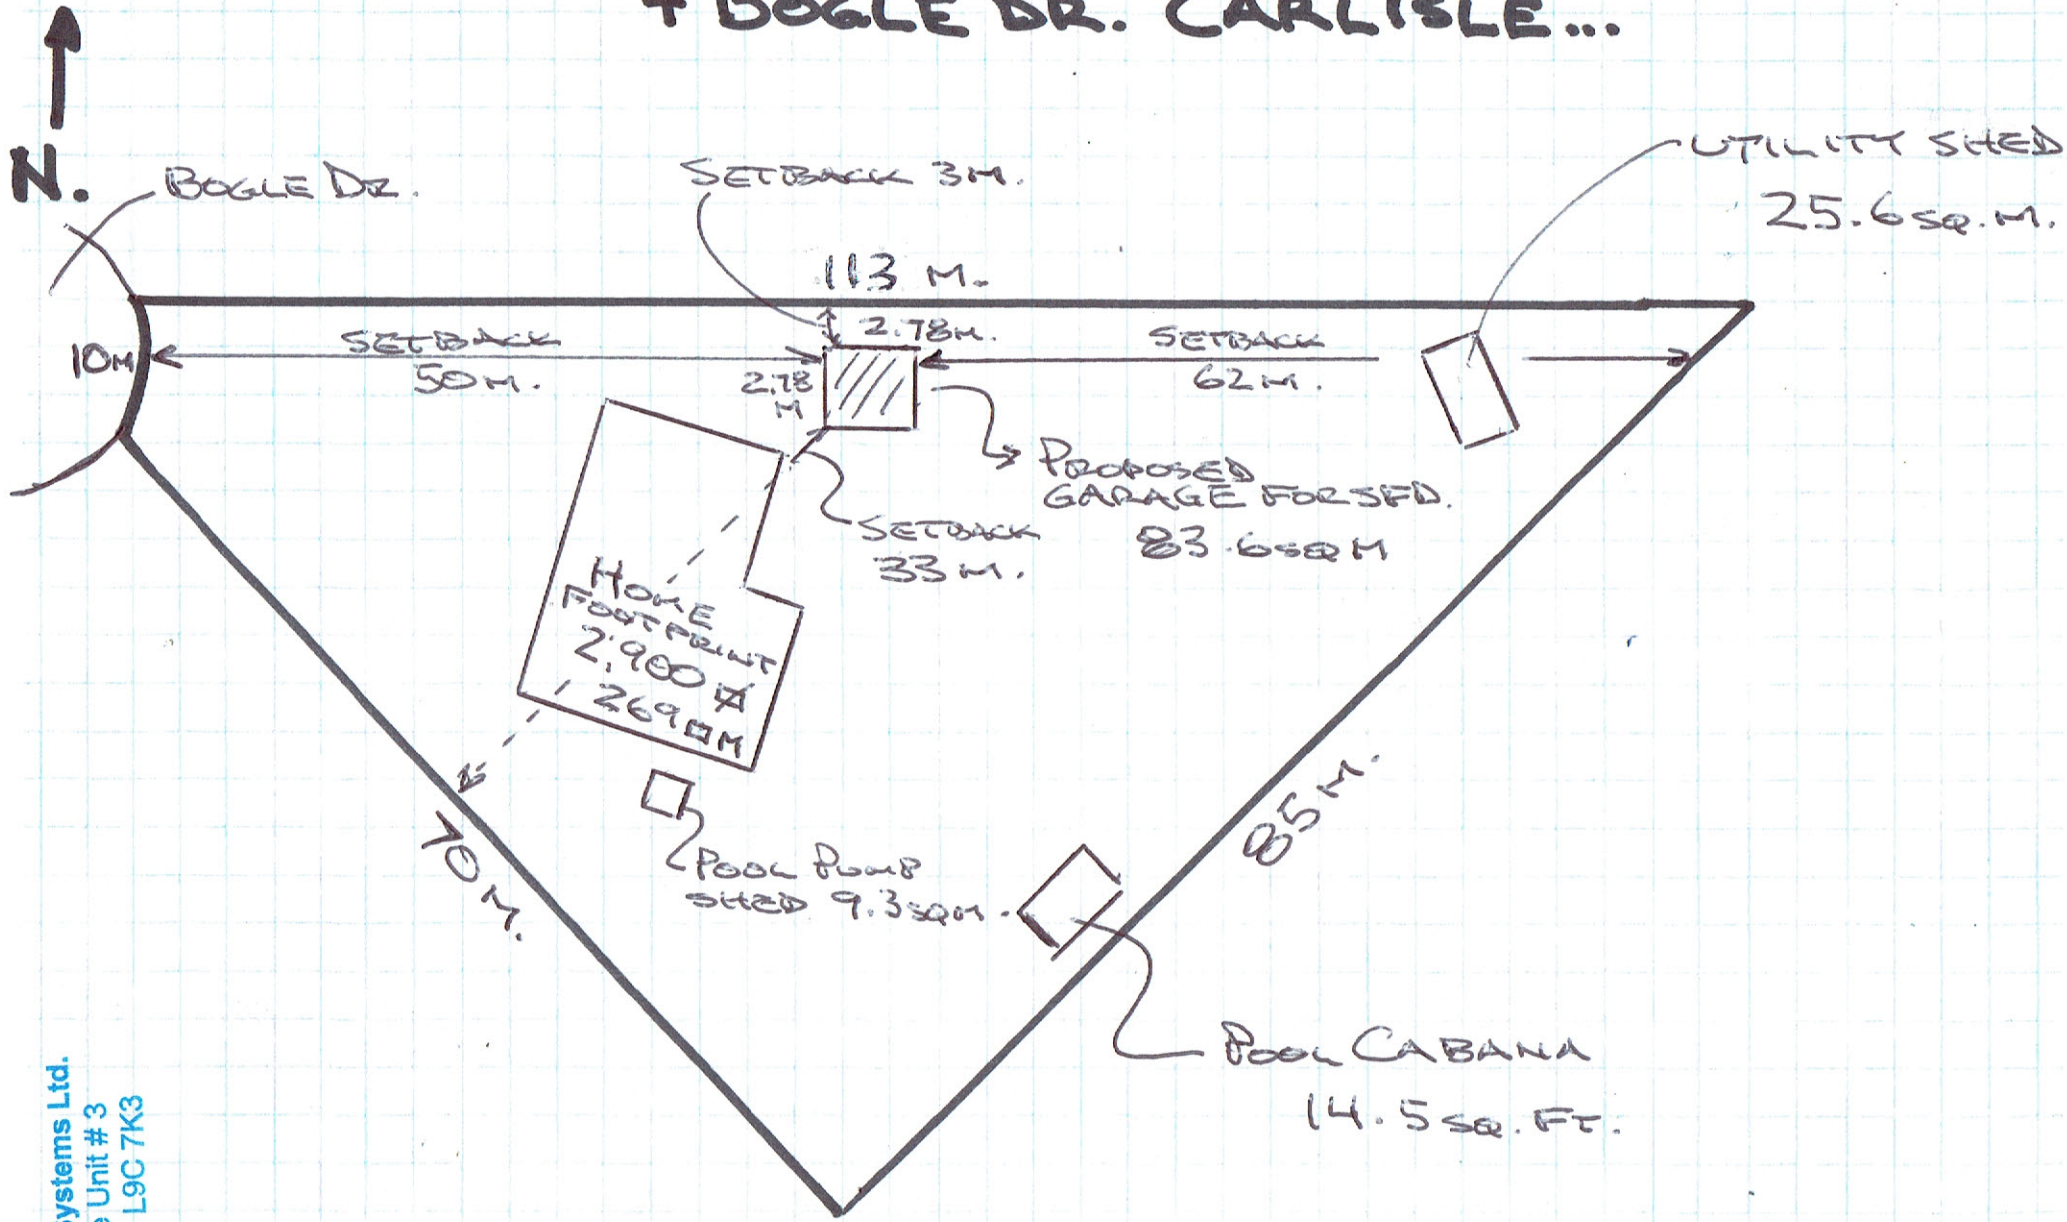 BOGLE DR. CARLISLE...
N.
BOGLE DR.
SETBACK 3M.
UTILITY SHED
25.6 SQ.M.
113 M.
10M
SETBACK
50M.
2.78M.
2.78
M
SETBACK
62M.
PROPOSED
GARAGE FOR SFD.
83.6 SQ M
SETBACK
33M.
HOME
FOOTPRINT
2,900
269 M
70M.
85M.
POOL PUMP
SHED 9.3 SQM.
POOL CABANA
14.5 SQ. FT.
ystems Ltd.
e Unit # 3
L9C 7K3